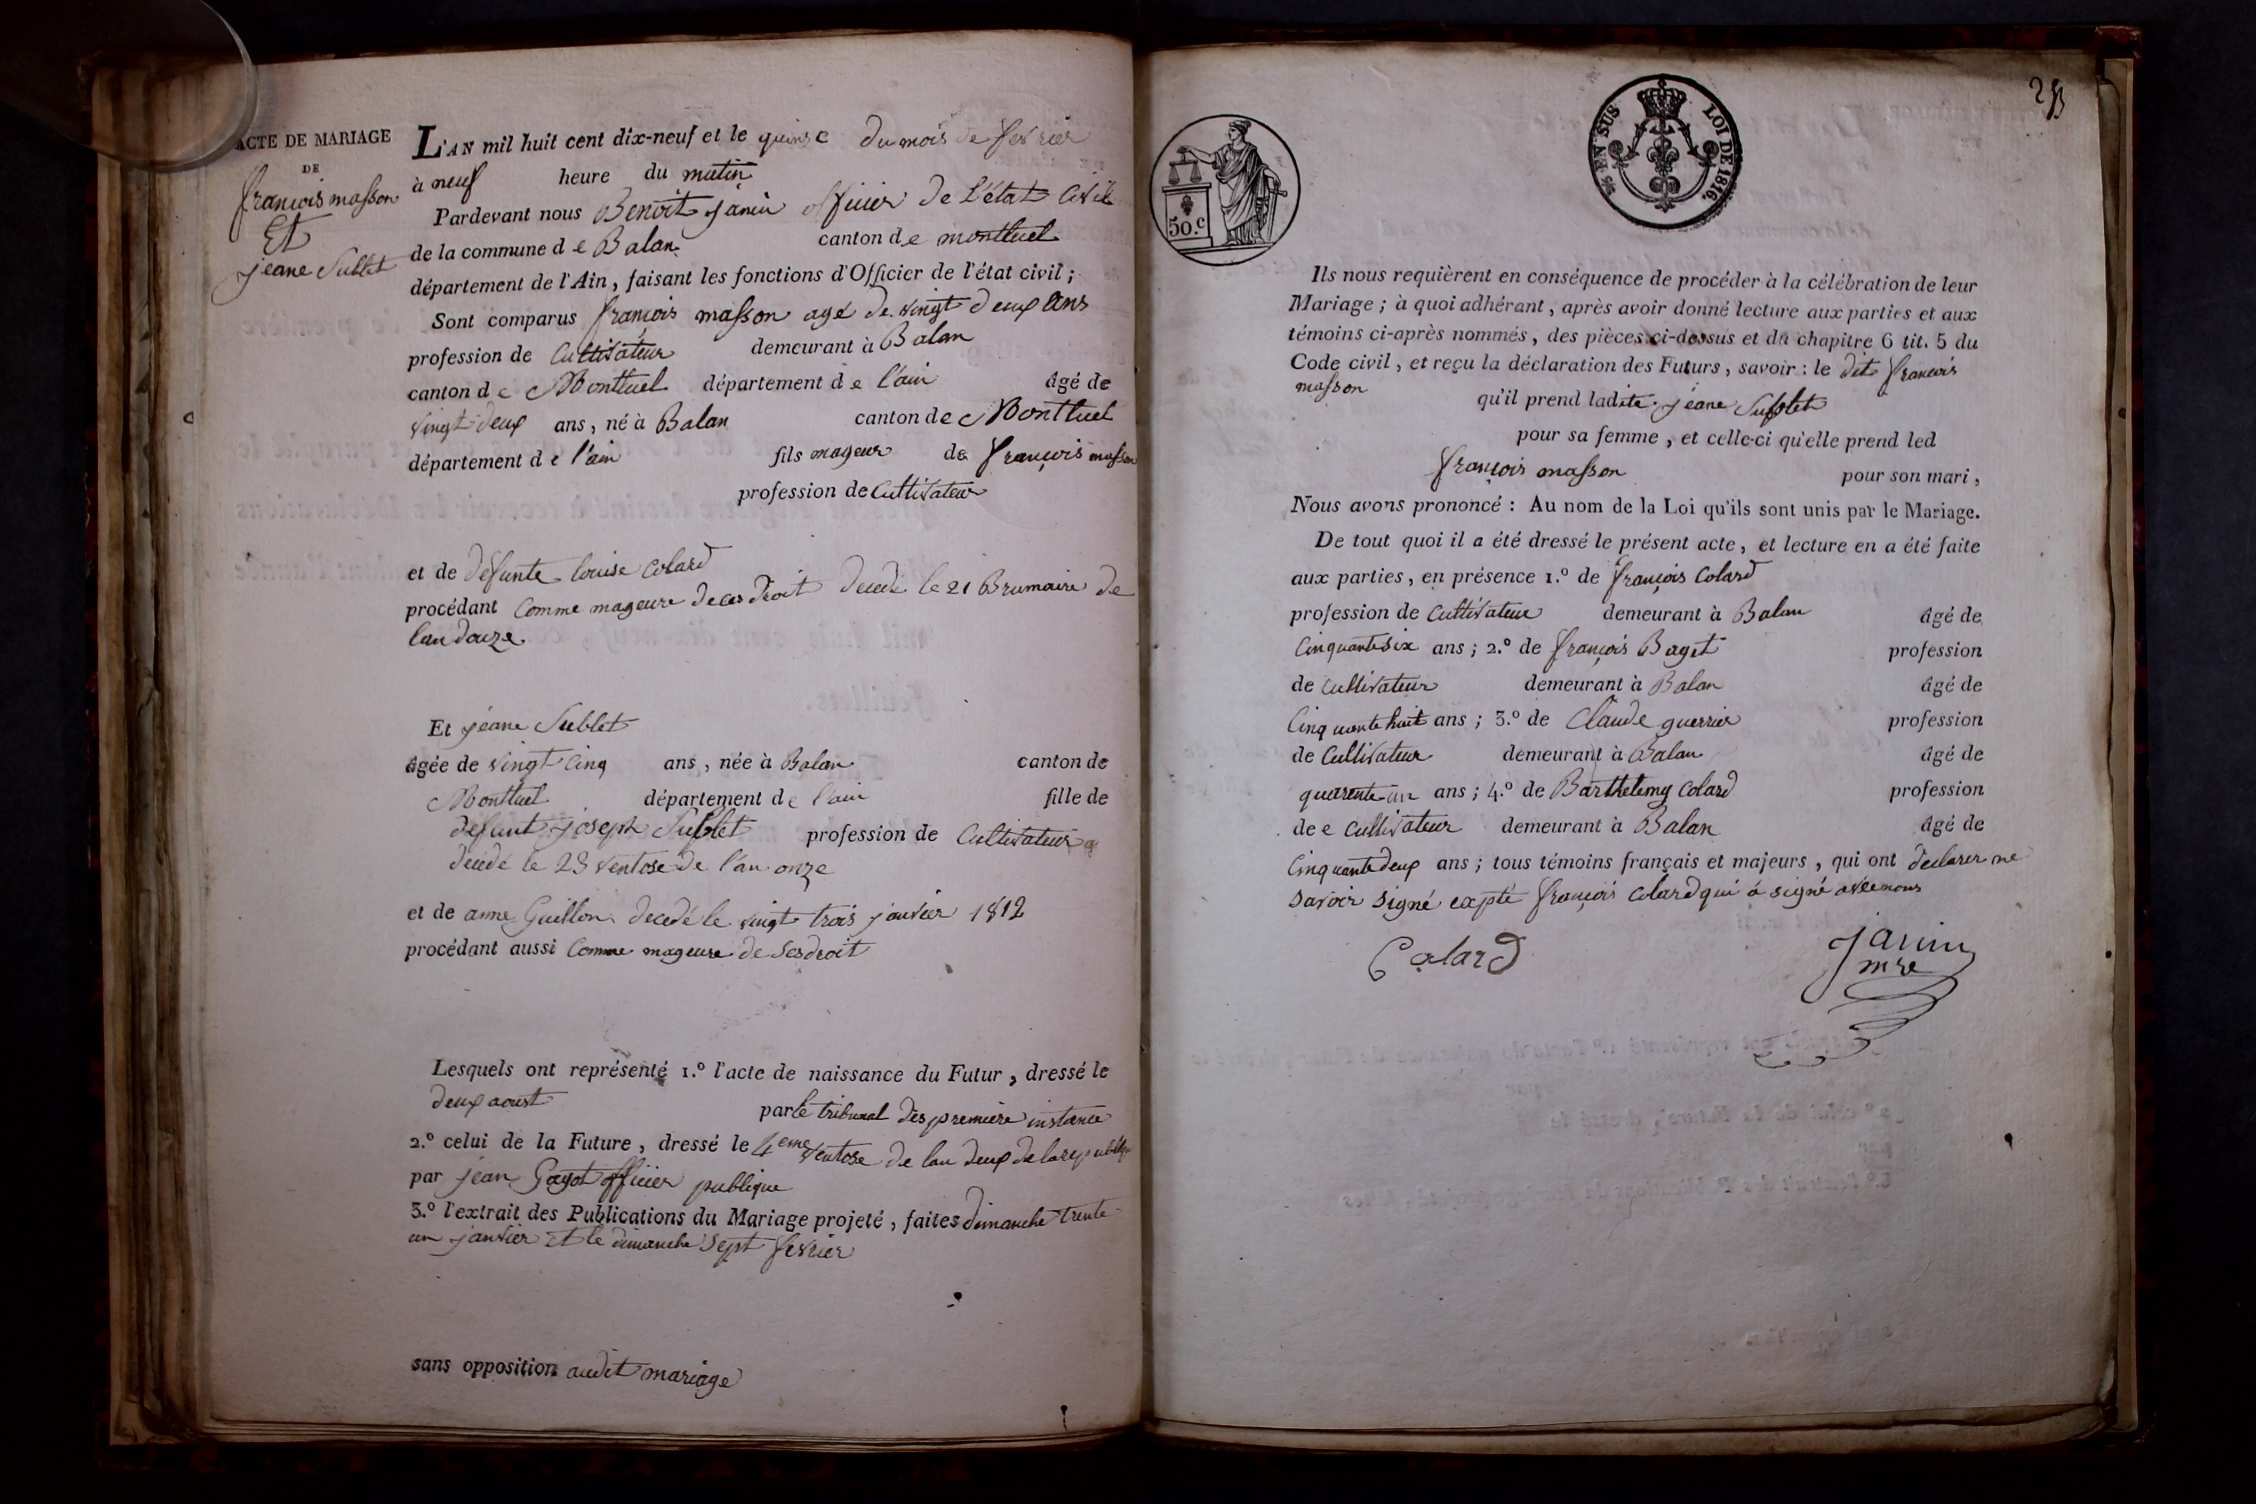 ACTE DE MARIAGE
DE
françois masson
Et
jeane Sublet
L'AN mil huit cent dix-neuf et le quinse du mois de fevrier
à neuf heure du matin
Pardevant nous Benoit janin officier de l'état civil
de la commune de Balan canton de montluel
département de l'Ain, faisant les fonctions d'Officier de l'état civil;
Sont comparus françois masson agé de vingt deux ans
profession de Cultivateur demeurant à Balan
canton de Montluel département de l'ain âgé de
vingt deux ans, né à Balan canton de Montluel
département de l'ain fils mageur de françois masson
profession de Cultivateur
et de defunte louise Colard
procédant Comme mageure de ces droit decede le 21 Brumaire de
lan douze
Et jéane Sublet
âgée de vingt cinq ans, née à Balan canton de
Montluel département de l'ain fille de
defunt joseph Sublet profession de Cultivateur
decede le 23 ventose de l'an onze
et de anne Guillon decedé le vingt trois janvier 1812
procédant aussi Comme mageure de Ses droit
Lesquels ont représenté 1.º l'acte de naissance du Futur, dressé le
deux aoust par le tribunal des première instance
2.º celui de la Future, dressé le 4eme ventose de lan deux de la republiq
par jean Gayot officier publique
3.º l'extrait des Publications du Mariage projeté, faites dimanche trente
un janvier et le dimanche sept fevrier
sans opposition audit mariage
50.c
EN SUS LOI DE 1816.
Ils nous requièrent en conséquence de procéder à la célébration de leur
Mariage; à quoi adhérant, après avoir donné lecture aux parties et aux
témoins ci-après nommés, des pièces ci-dessus et du chapitre 6 tit. 5 du
Code civil, et reçu la déclaration des Futurs, savoir: le dit francois
masson
qu'il prend ladite jéane Sublet
pour sa femme, et celle-ci qu'elle prend led
françois masson pour son mari,
Nous avons prononcé: Au nom de la Loi qu'ils sont unis par le Mariage.
De tout quoi il a été dressé le présent acte, et lecture en a été faite
aux parties, en présence 1.º de françois Colard
profession de Cultivateur demeurant à Balan âgé de
Cinquante six ans; 2.º de françois Baget profession
de Cultivateur demeurant à Balan âgé de
Cinquante huit ans; 3.º de Claude guerrier profession
de Cultivateur demeurant à Balan âgé de
quarente un ans; 4.º de Barthelemy Colard profession
de e Cultivateur demeurant à Balan âgé de
Cinquante deux ans; tous témoins français et majeurs, qui ont declarer ne
savoir signé expté françois Colard qui à signé avec nous
Colard
janin
mre